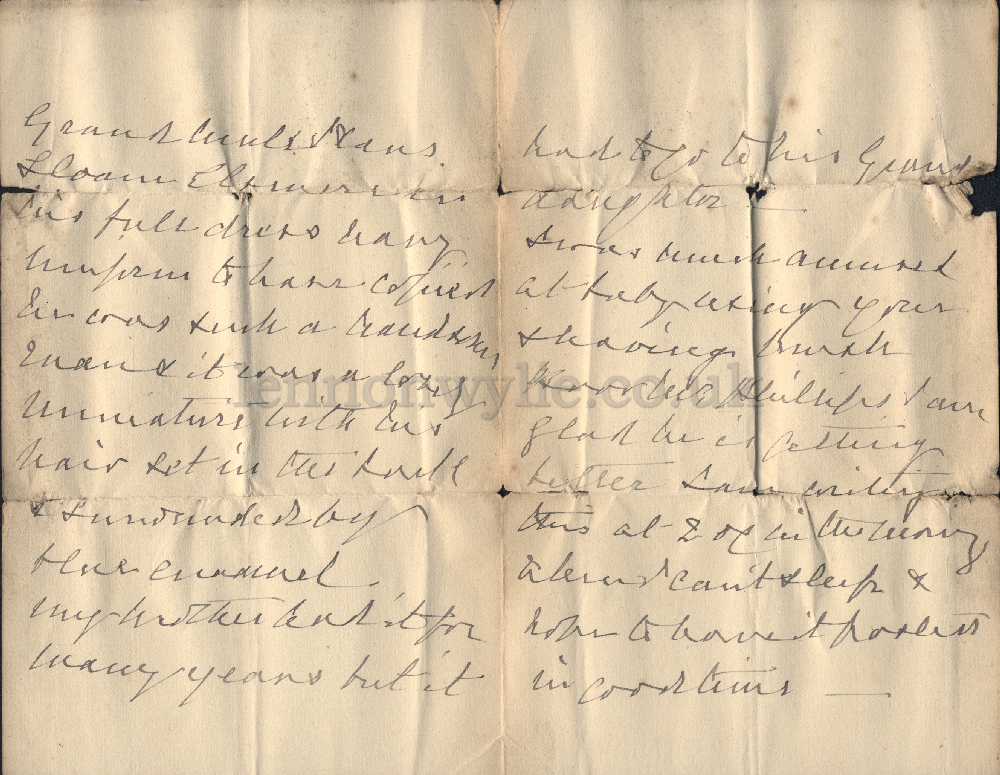 Grand Uncle Hans
Sloan Elsmere in
his full dress navy
uniform to have copied
he was such a handsome
man & it was a lovely
miniature with his
hair set in the back
& surrounded by
blue enamel
my brother had it for
many years but it
had to go to his Grand
daughter —
I was much amused
at baby using your
shaving brush
Phillips I am
glad he is getting
better I am writing
this at 2 oc in the morng
when I can't sleep &
hope to have it posted
in good time —
lennonwylie.co.uk